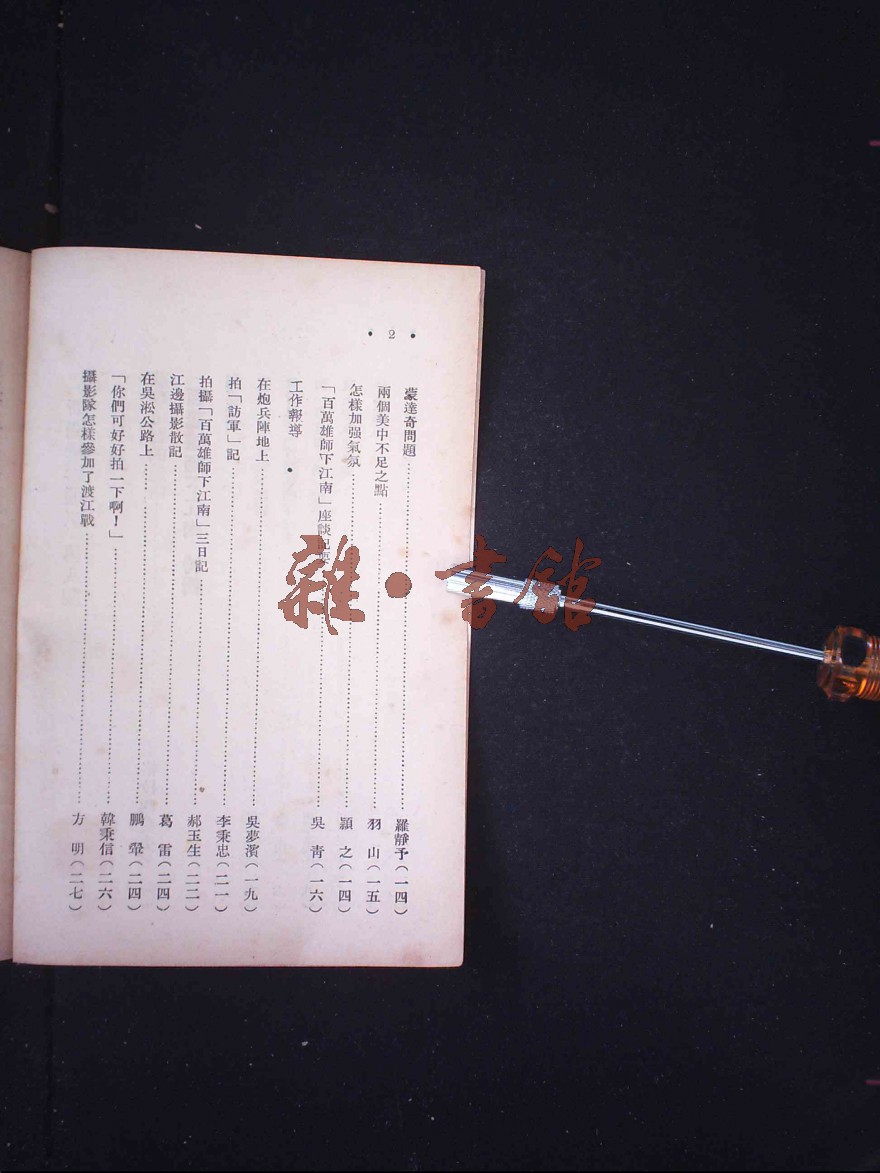 • 2 •
蒙達奇問題……羅靜予(一四)
兩個美中不足之點……羽山(一五)
怎樣加强氣氛……穎之(一四)
「百萬雄師下江南」座談記要……吳青(一六)
工作報導
在炮兵陣地上……吳夢濱(一九)
拍「訪軍」記……李秉忠(二一)
拍攝「百萬雄師下江南」三日記……郝玉生(二二)
江邊攝影散記……葛雷(二四)
在吳淞公路上……鵬翬(二四)
「你們可好好拍一下啊!」……韓秉信(二六)
攝影隊怎樣參加了渡江戰……方明(二七)
雜•書館